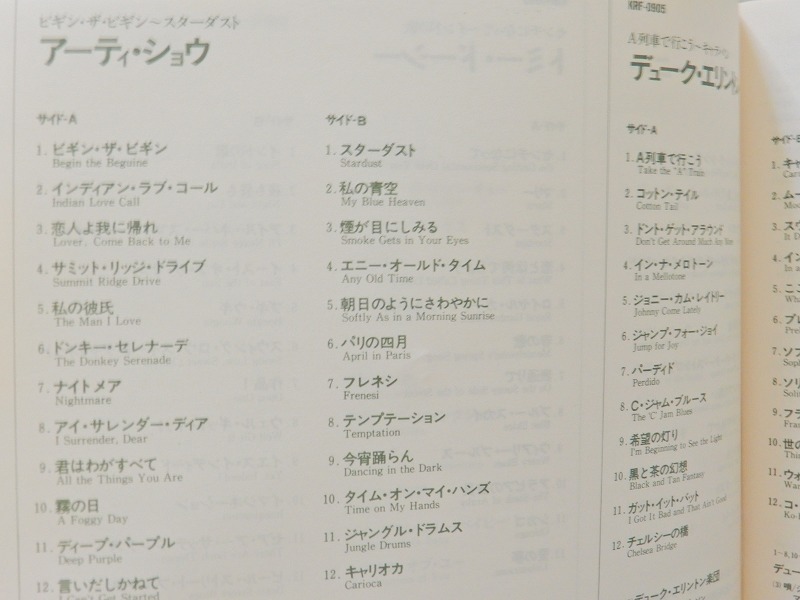 ビギン・ザ・ビギン〜スターダスト
アーティ・ショウ
サイド-A
1. ビギン・ザ・ビギン
Begin the Beguine
2. インディアン・ラブ・コール
Indian Love Call
3. 恋人よ我に帰れ
Lover, Come Back to Me
4. サミット・リッジ・ドライブ
Summit Ridge Drive
5. 私の彼氏
The Man I Love
6. ドンキー・セレナーデ
The Donkey Serenade
7. ナイトメア
Nightmare
8. アイ・サレンダー・ディア
I Surrender, Dear
9. 君はわがすべて
All the Things You Are
10. 霧の日
A Foggy Day
11. ディープ・パープル
Deep Purple
12. 言いだしかねて
I Can't Get Started
サイド-B
1. スターダスト
Stardust
2. 私の青空
My Blue Heaven
3. 煙が目にしみる
Smoke Gets in Your Eyes
4. エニー・オールド・タイム
Any Old Time
5. 朝日のようにさわやかに
Softly As in a Morning Sunrise
6. パリの四月
April in Paris
7. フレネシ
Frenesi
8. テンプテーション
Temptation
9. 今宵踊らん
Dancing in the Dark
10. タイム・オン・マイ・ハンズ
Time on My Hands
11. ジャングル・ドラムス
Jungle Drums
12. キャリオカ
Carioca
KRF-0905
A列車で行こう〜キャラバン
デューク・エリントン
サイド-A
1. A列車で行こう
Take the "A" Train
2. コットン・テイル
Cotton Tail
3. ドント・ゲット・アラウンド
Don't Get Around Much Any More
4. イン・ナ・メロトーン
In a Mellotone
5. ジョニー・カム・レイトリー
Johnny Come Lately
6. ジャンプ・フォー・ジョイ
Jump for Joy
7. パーディド
Perdido
8. C・ジャム・ブルース
The "C" Jam Blues
9. 希望の灯り
I'm Beginning to See the Light
10. 黒と茶の幻想
Black and Tan Fantasy
11. ガット・イット・バット
I Got It Bad and That Ain't Good
12. チェルシーの橋
Chelsea Bridge
デューク・エリントン楽団
サイド-B
1. キャ
Car
2. ムー
Moo
3. スウ
It D
4. イン
In a
5. ここ
Wha
6. プレ
Pre
7. ソフ
Soph
8. ソリ
Soli
9. フラ
10. 世の
Thi
11. ウォ
12. コ・
Ko-
1〜8, 10
デュー